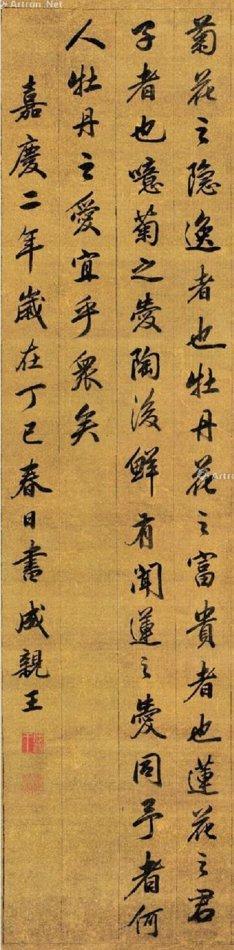 菊花之隐逸者也牡丹花之富貴者也蓮花之君
子者也噫菊之愛陶後鮮有聞蓮之愛同予者何
人牡丹之愛宜乎衆矣
嘉慶二年歲在丁巳春日書成親王
Artron.Net